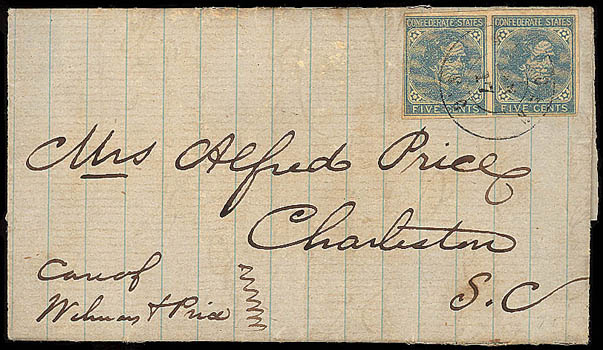 CONFEDERATE STATES CONFEDERATE STATES
FIVE CENTS FIVE CENTS
17
Mrs Alfred Price
Charleston
S.C
Care of
& Price